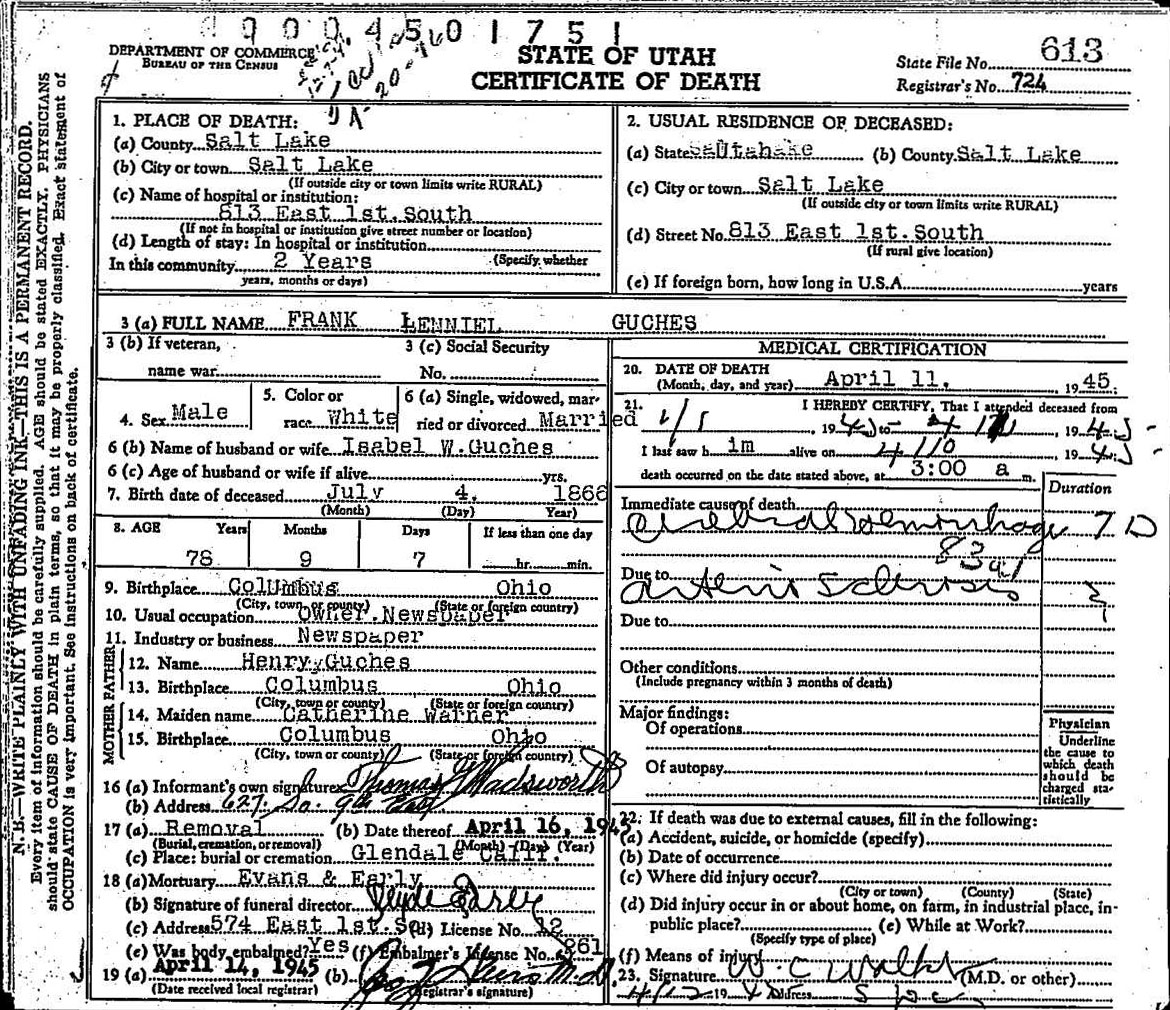 9 0 0 4 5 0 1 7 5 1
DEPARTMENT OF COMMERCE
BUREAU OF THE CENSUS
STATE OF UTAH
CERTIFICATE OF DEATH
State File No. 613
Registrar's No. 724
N. B.—WRITE PLAINLY WTH UNFADING INK—THIS IS A PERMANENT RECORD.
Every item of information should be carefully supplied. AGE should be stated EXACTLY. PHYSICIANS
should state CAUSE OF DEATH in plain terms, so that it may be properly classified. Exact statement of
OCCUPATION is very important. See instructions on back of certificate.
1. PLACE OF DEATH:
(a) County Salt Lake
(b) City or town Salt Lake
(If outside city or town limits write RURAL)
(c) Name of hospital or institution:
813 East 1st. South
(If not in hospital or institution give street number or location)
(d) Length of stay: In hospital or institution
In this community 2 Years (Specify whether
years, months or days)
2. USUAL RESIDENCE OF DECEASED:
(a) State (b) County Salt Lake
(c) City or town Salt Lake
(If outside city or town limits write RURAL)
(d) Street No. 813 East 1st. South
(If rural give location)
(e) If foreign born, how long in U.S.A. years
3 (a) FULL NAME FRANK LENNIEL GUCHES
3 (b) If veteran,
name war
3 (c) Social Security
No.
4. Sex Male
5. Color or
race White
6 (a) Single, widowed, mar-
ried or divorced Married
6 (b) Name of husband or wife Isabel W. Guches
6 (c) Age of husband or wife if alive yrs.
7. Birth date of deceased July 4, 1866
(Month) (Day) Year)
8. AGE Years Months Days If less than one day
78 9 7 hr. min.
9. Birthplace Columbus Ohio
(City, town or county) (State or foreign country)
10. Usual occupation Owner. Newspaper
11. Industry or business Newspaper
FATHER
12. Name Henry Guches
13. Birthplace Columbus Ohio
(City, town or county) (State or foreign country)
MOTHER
14. Maiden name Catherine Warner
15. Birthplace Columbus Ohio
(City, town or county) (State or foreign country)
16 (a) Informant's own signature Thomas Wadsworth
(b) Address 627 So. 9th East
17 (a) Removal (b) Date thereof April 16, 1945
(Burial, cremation, or removal) (Month) (Day) (Year)
(c) Place: burial or cremation Glendale Calif.
18 (a) Mortuary Evans & Early
(b) Signature of funeral director Clyde Early
(c) Address 574 East 1st. So. (d) License No. 12
(e) Was body embalmed? Yes (f) Embalmer's License No. 261
19 (a) April 14, 1945 (b)
(Date received local registrar) Registrar's signature)
MEDICAL CERTIFICATION
20. DATE OF DEATH
(Month, day, and year) April 11, 1945.
21. I HEREBY CERTIFY, That I attended deceased from
4/1, 1945 to 4 11, 1945
I last saw h im alive on 4/10, 1945
death occurred on the date stated above, at 3:00 a m.
Duration
Immediate cause of death
cerebral hemorrhage 7 D
83a1
Due to
arterio sclerosis ?
Due to
Other conditions
(Include pregnancy within 3 months of death)
Major findings:
Of operations
Of autopsy
Physician
Underline
the cause to
which death
should be
charged sta-
tistically
22. If death was due to external causes, fill in the following:
(a) Accident, suicide, or homicide (specify)
(b) Date of occurrence
(c) Where did injury occur?
(City or town) (County) (State)
(d) Did injury occur in or about home, on farm, in industrial place, in-
public place? (e) While at Work?
(Specify type of place)
(f) Means of injury
23. Signature W. C. Walker (M.D. or other)
4/12 19 45 Address S L C